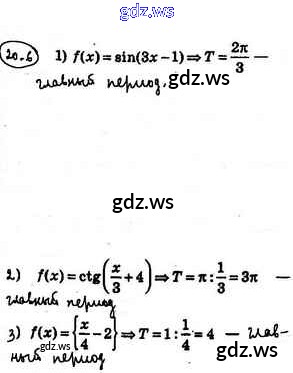 20.6 1) f(x) = sin(3x − 1) ⇒ T = 2π/3 —
главный период.
gdz.ws
gdz.ws
gdz.ws
2) f(x) = ctg(x/3 + 4) ⇒ T = π : 1/3 = 3π —
главный период
gdz.ws
3) f(x) = {x/4 − 2} ⇒ T = 1 : 1/4 = 4 — глав-
ный период
gdz.ws